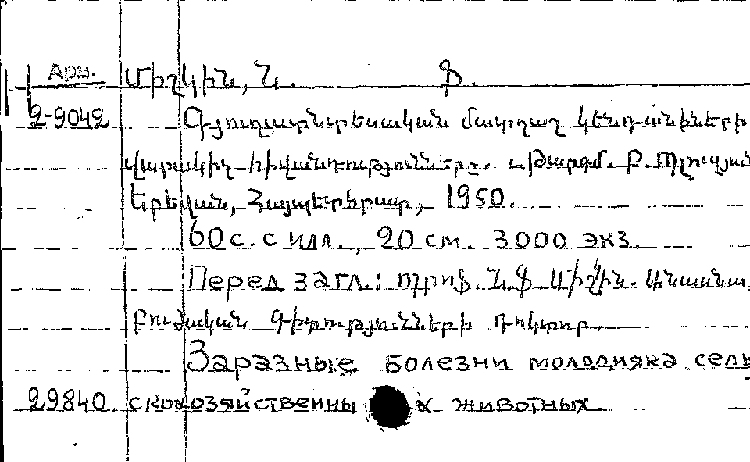 Арм. Միշկին, Ն. Ֆ.
2-9042 Գյուղատնտեսական մատղաշ կենդանիների
վարակիչ հիվանդությունները. Թարգմ. Բ.
Երեվան, Հայպետհրատ, 1950.
60 с. с илл., 20 см. 3000 экз.
Перед загл.: պրոֆ. Ն. Ֆ. Միշկին. Անասնա
բուժական Գիտությունների դոկտոր
Заразные болезни молодняка сель
29840. скохозяйственны х животных